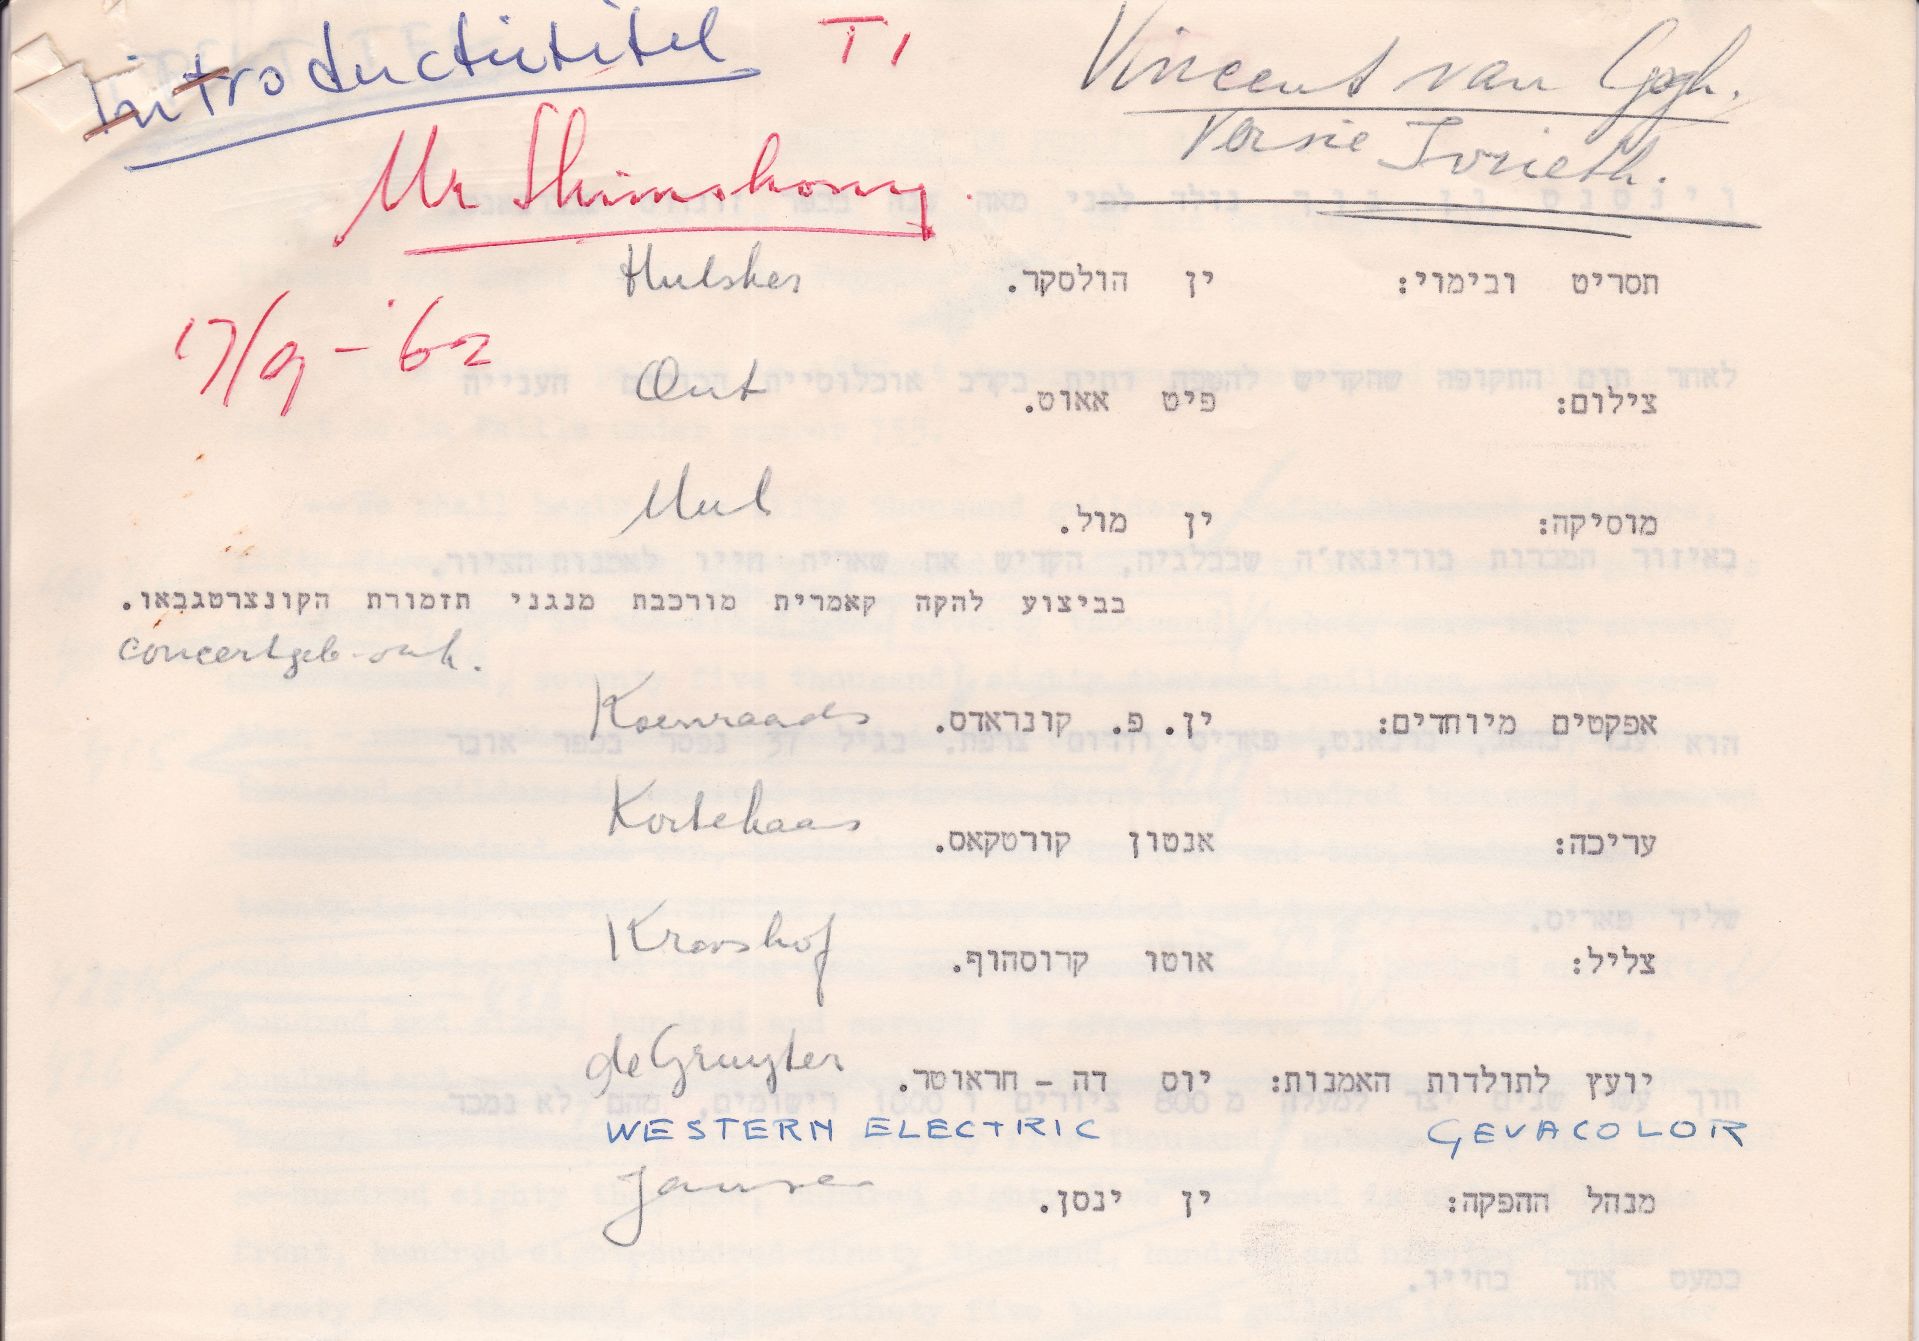 Introductietitel T1
Vincent van Gogh.
Versie Ivrieth.
Mr Shimshony.
17/9-'62
תסריט ובימוי: ין הולסקר. Hulsker
צילום: פיט אאוט. Out
מוסיקה: ין מול. Mul
בביצוע להקה קאמרית מורכבת מנגני תזמורת הקונצרטגבאו.
concertgeb-ork.
אפקטים מיוחדים: ין. פ. קונראדס. Koenraads
עריכה: אנטון קורטקאס. Kortehaas
צליל: אוטו קרוסהוף. Kroshof
יועץ לתולדות האמנות: יוס דה - חראוטר. de Gruyter
WESTERN ELECTRIC GEVACOLOR
מנהל ההפקה: ין ינסן. Janse